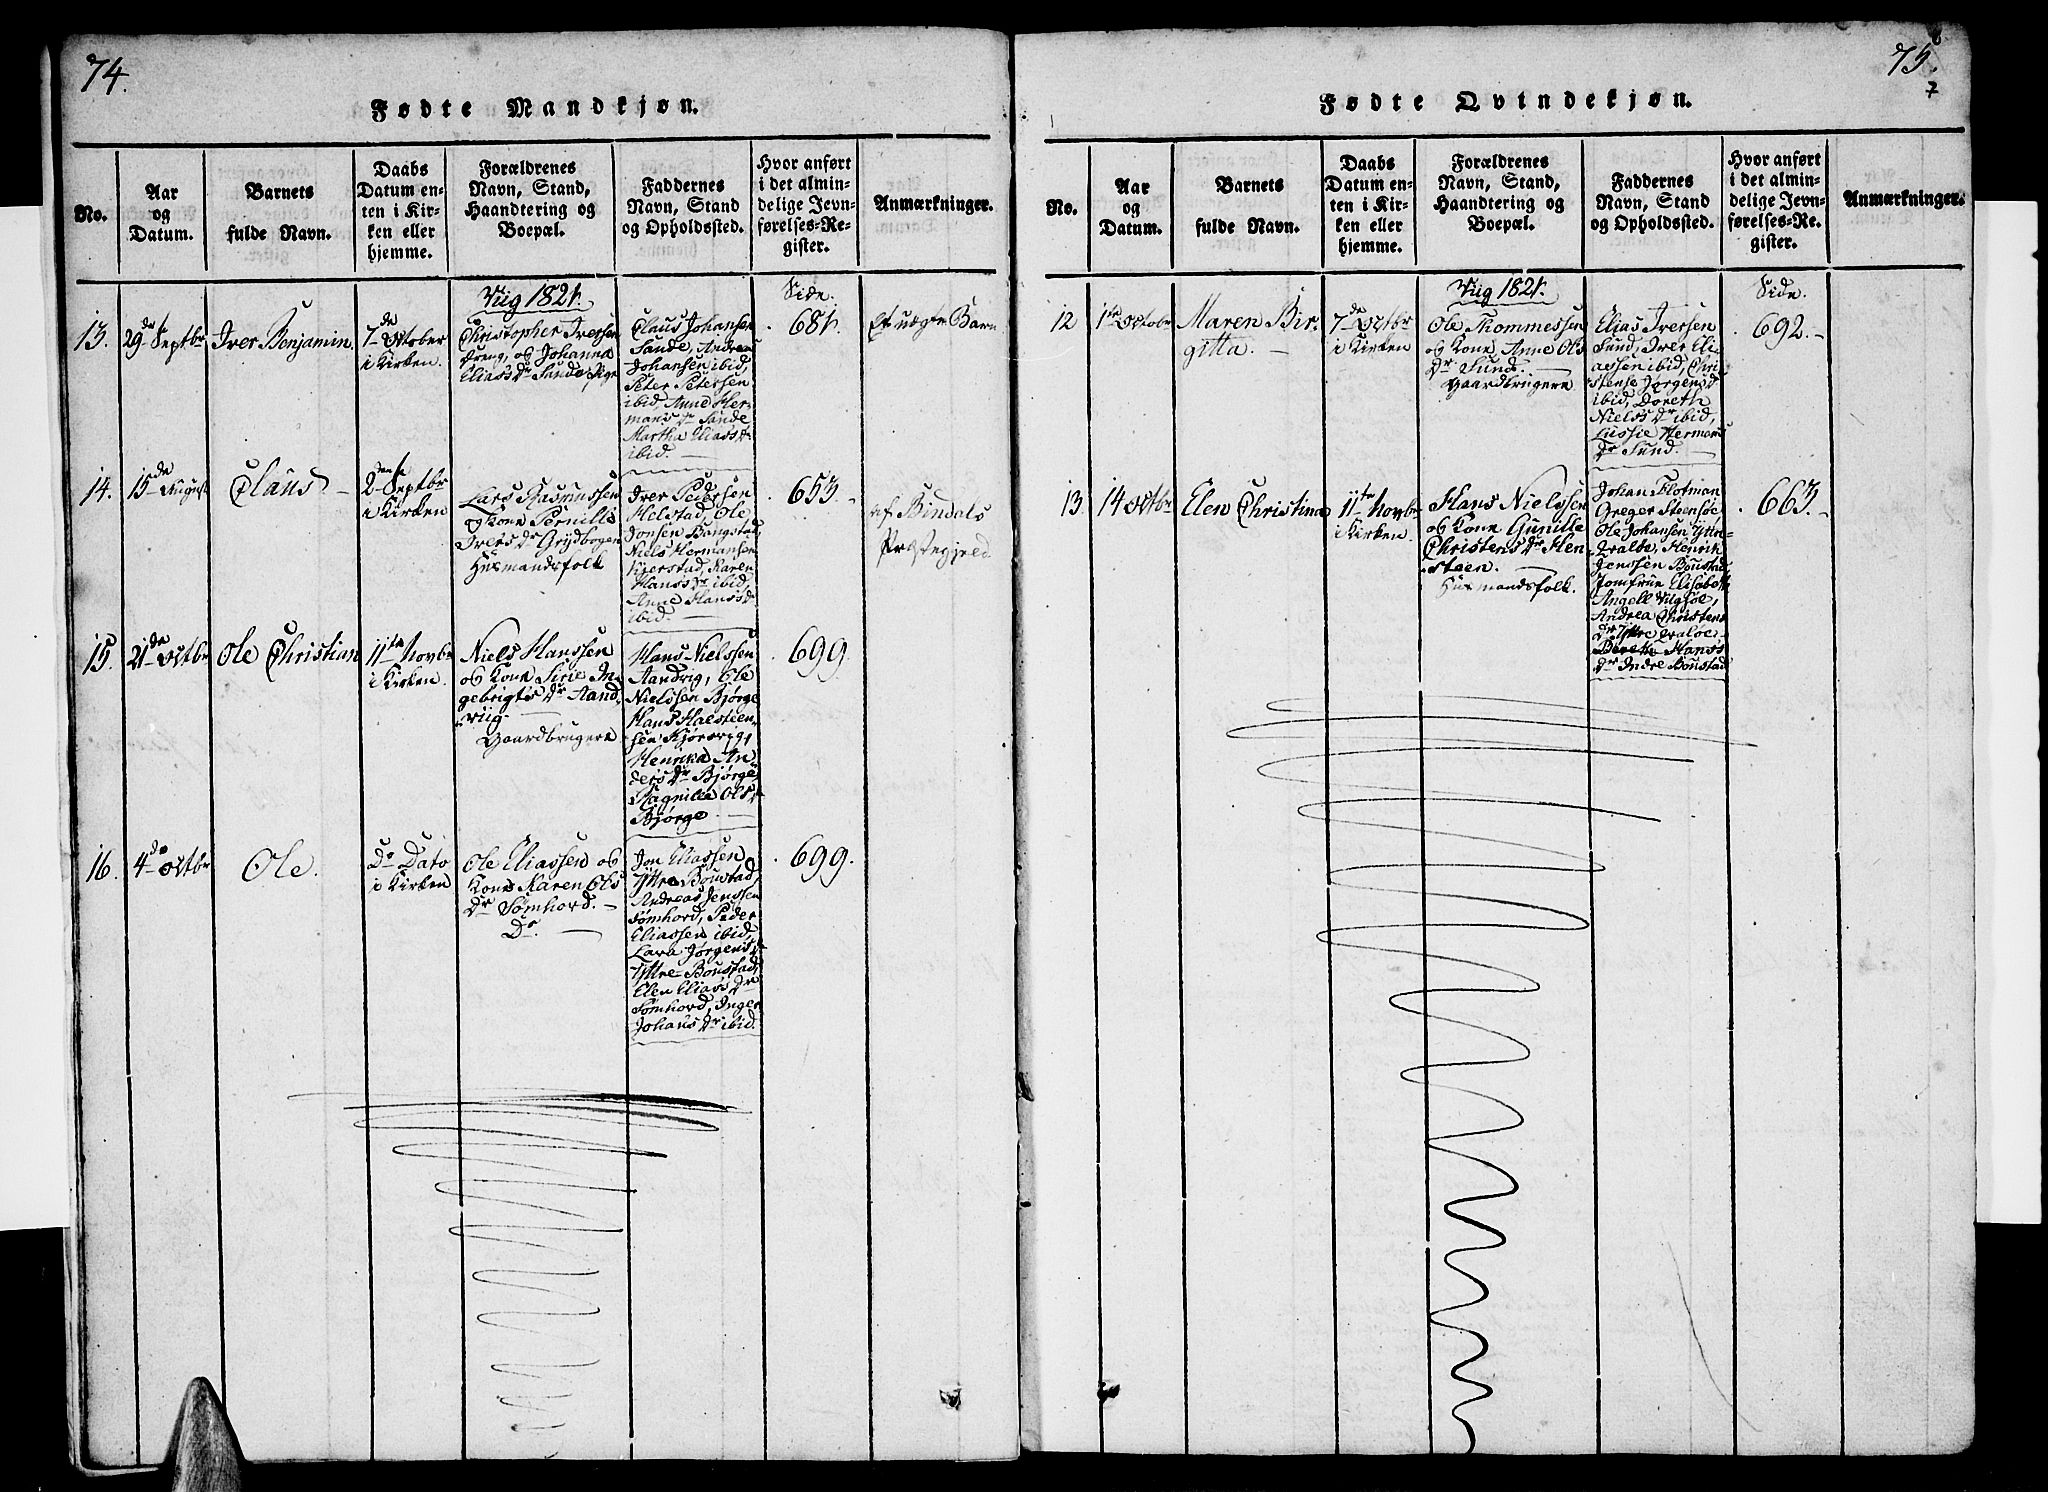 74.
Fødte Mandkjøn.
No.
Aar
og
Datum.
Barnets
fulde Navn.
Daabs
Datum en-
ten i Kir-
ken eller
hjemme.
Forældrenes
Navn, Stand,
Haandtering og
Boepæl.
Faddernes
Navn, Stand
og Opholdssted.
Hvor anført
i det almin-
delige Jevn-
førelses-Re-
gister.
Anmærkninger.
Viig 1821.
Side.
13.
29de Septbr
Iver Benjamin
7de October
i Kirken.
Christopher Iversen
Dreng, og Johanna
Elias Dr Sande Pige
Claus Johansen
Sande, Andreas
Johansen ibid,
Peter Petersen
ibid, Anne Her-
mans Dr Sande
Martha Elias Dr
ibid.
681.
Et uægte Barn
14.
15de August
Claus
2den Septbr
i Kirken
Lars Rasmussen
og Kone Pernille
Ivers Dr Grydbogen
Huusmandsfolk
Iver Pedersen
Helstad, Ole
Jonsen Bangstad,
Niels Hermansen
Kierstad, Karen
Hans Dr ibid,
Anne Hans Dr
ibid.
653
af Bindals
Præstegjeld
15.
21de Octbr
Ole Christian
11te Novbr
i Kirken.
Niels Hanssen
og Kone Sirie In-
gebrigts Dr Aand-
viig.
Gaardbrugere
Hans Nielssen
Aandvig, Ole
Nielssen Bjørge
Hans Halsteen-
sen
Henrika An-
ders Dr Bjørge,
Ragnilla Ols Dr
Bjørge
699.
16.
4de Octbr
Ole.
Do Dato
i Kirken
Ole Eliassen og
Kone Karen Ols
Dr Sømhord.
Do.
Jon Eliassen
Yttre Boustad,
Andreas Jenssen
Sømhord, Peder
Eliassen ibid,
Lava Jørgens Dr
Yttre-Boustad,
Elen Elias Dr
Sømhord, Inger
Johans Dr ibid.
699.
75.
7
Fødte Qvindekjøn.
No.
Aar
og
Datum.
Barnets
fulde Navn.
Daabs
Datum en-
ten i Kir-
ken eller
hjemme.
Forældrenes
Navn, Stand,
Haandtering og
Boepæl.
Faddernes
Navn, Stand
og Opholdssted.
Hvor anført
i det almin-
delige Jevn-
førelses-Re-
gister.
Anmærkninger.
Viig 1821.
Side.
12
1te Octobr
Maren Bir-
gitta.
7de Octbr
i Kirken
Ole Thommessen
og Kone Anne Ols
Dr Sund.
Gaardbrugere
Elias Iversen
Sund, Iver Eli-
assen ibid, Chri-
stense Jørgens Dr
ibid, Doreth
Niels Dr ibid,
Lussie Hermans
Dr Sund.
692.
13.
14 Octbr
Elen Christina
11te Novbr
i Kirken.
Hans Nielssen
og Kone Gunille
Christens Dr Hen-
steen.
Huusmandsfolk.
Johan Flotman
Greger Steensøe
Ole Johansen Yttre-
Qvaløe, Henrik
Jenssen Boustad
Jomfrue Elisabeth
Angell Viigsøe,
Andrea Christens
Dr Yttre Qvaløe
Bereth Hans
Dr Indre Boustad
663.